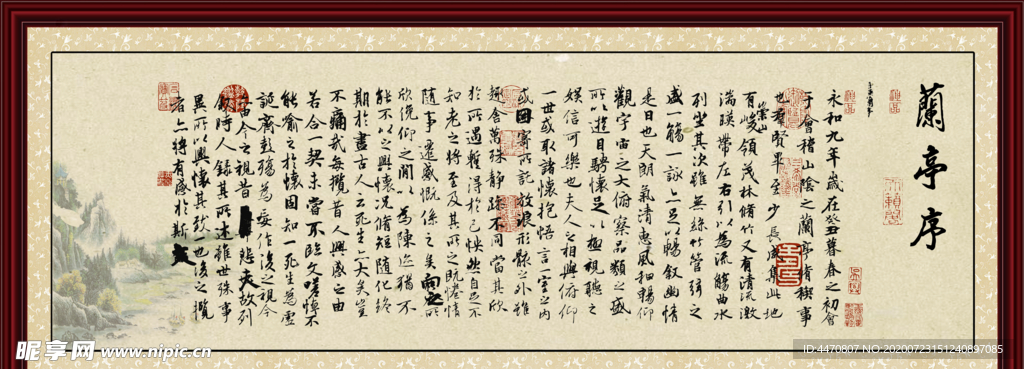 蘭亭序
永和九年歲在癸丑暮春之初會
于會稽山陰之蘭亭脩稧事
也羣賢畢至少長咸集此地
有崇山峻領茂林脩竹又有清流激
湍暎帶左右引以為流觴曲水
列坐其次雖無絲竹管弦之
盛一觴一詠亦足以暢敘幽情
是日也天朗氣清惠風和暢仰
觀宇宙之大俯察品類之盛
所以遊目騁懷足以極視聽之
娛信可樂也夫人之相與俯仰
一世或取諸懷抱悟言一室之內
或因寄所託放浪形骸之外雖
趣舍萬殊靜躁不同當其欣
於所遇蹔得於己怏然自足不
知老之將至及其所之既惓情
隨事遷感慨係之矣向之所
欣俛仰之閒以為陳迹猶不
能不以之興懷況脩短隨化終
期於盡古人云死生亦大矣豈
不痛哉每攬昔人興感之由
若合一契未嘗不臨文嗟悼不
能喻之於懷固知一死生為虛
誕齊彭殤為妄作後之視今
亦由今之視昔悲夫故列
敘時人錄其所述雖世殊事
異所以興懷其致一也後之攬
者亦將有感於斯文
昵享网 www.nipic.cn
ID:4470807 NO:20200723151240897085